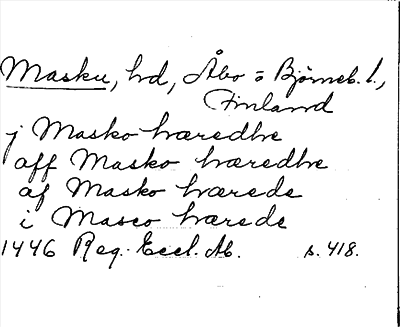 Masku, hd, Åbo o Björneb. l.,
Finland
j Masko hæredhe
aff Masko hæredhe
af Masko hærede
i Masco hærede
1446 Reg. Eccl. Ab. s. 418.